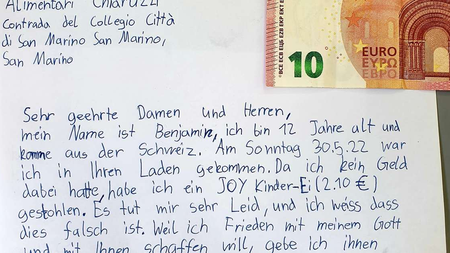 Alimentari Chiaruzzi
Contrada del Collegio Città
di San Marino San Marino,
San Marino
10
EURO
ΕΥΡΩ
ЕВРО
Sehr geehrte Damen und Herren,
mein Name ist Benjamin, ich bin 12 Jahre alt und
komme aus der Schweiz. Am Sonntag 30.5.22 war
ich in Ihren Laden gekommen. Da ich kein Geld
dabei hatte, habe ich ein JOY Kinder-Ei (2.10 €)
gestohlen. Es tut mir sehr Leid, und ich weiss dass
dies falsch ist. Weil ich Frieden mit meinem Gott
und mit Ihnen schaffen will, gebe ich ihnen